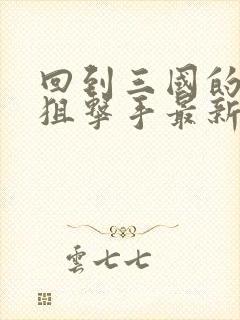 回到三國的
狙擊手最新
雲七七